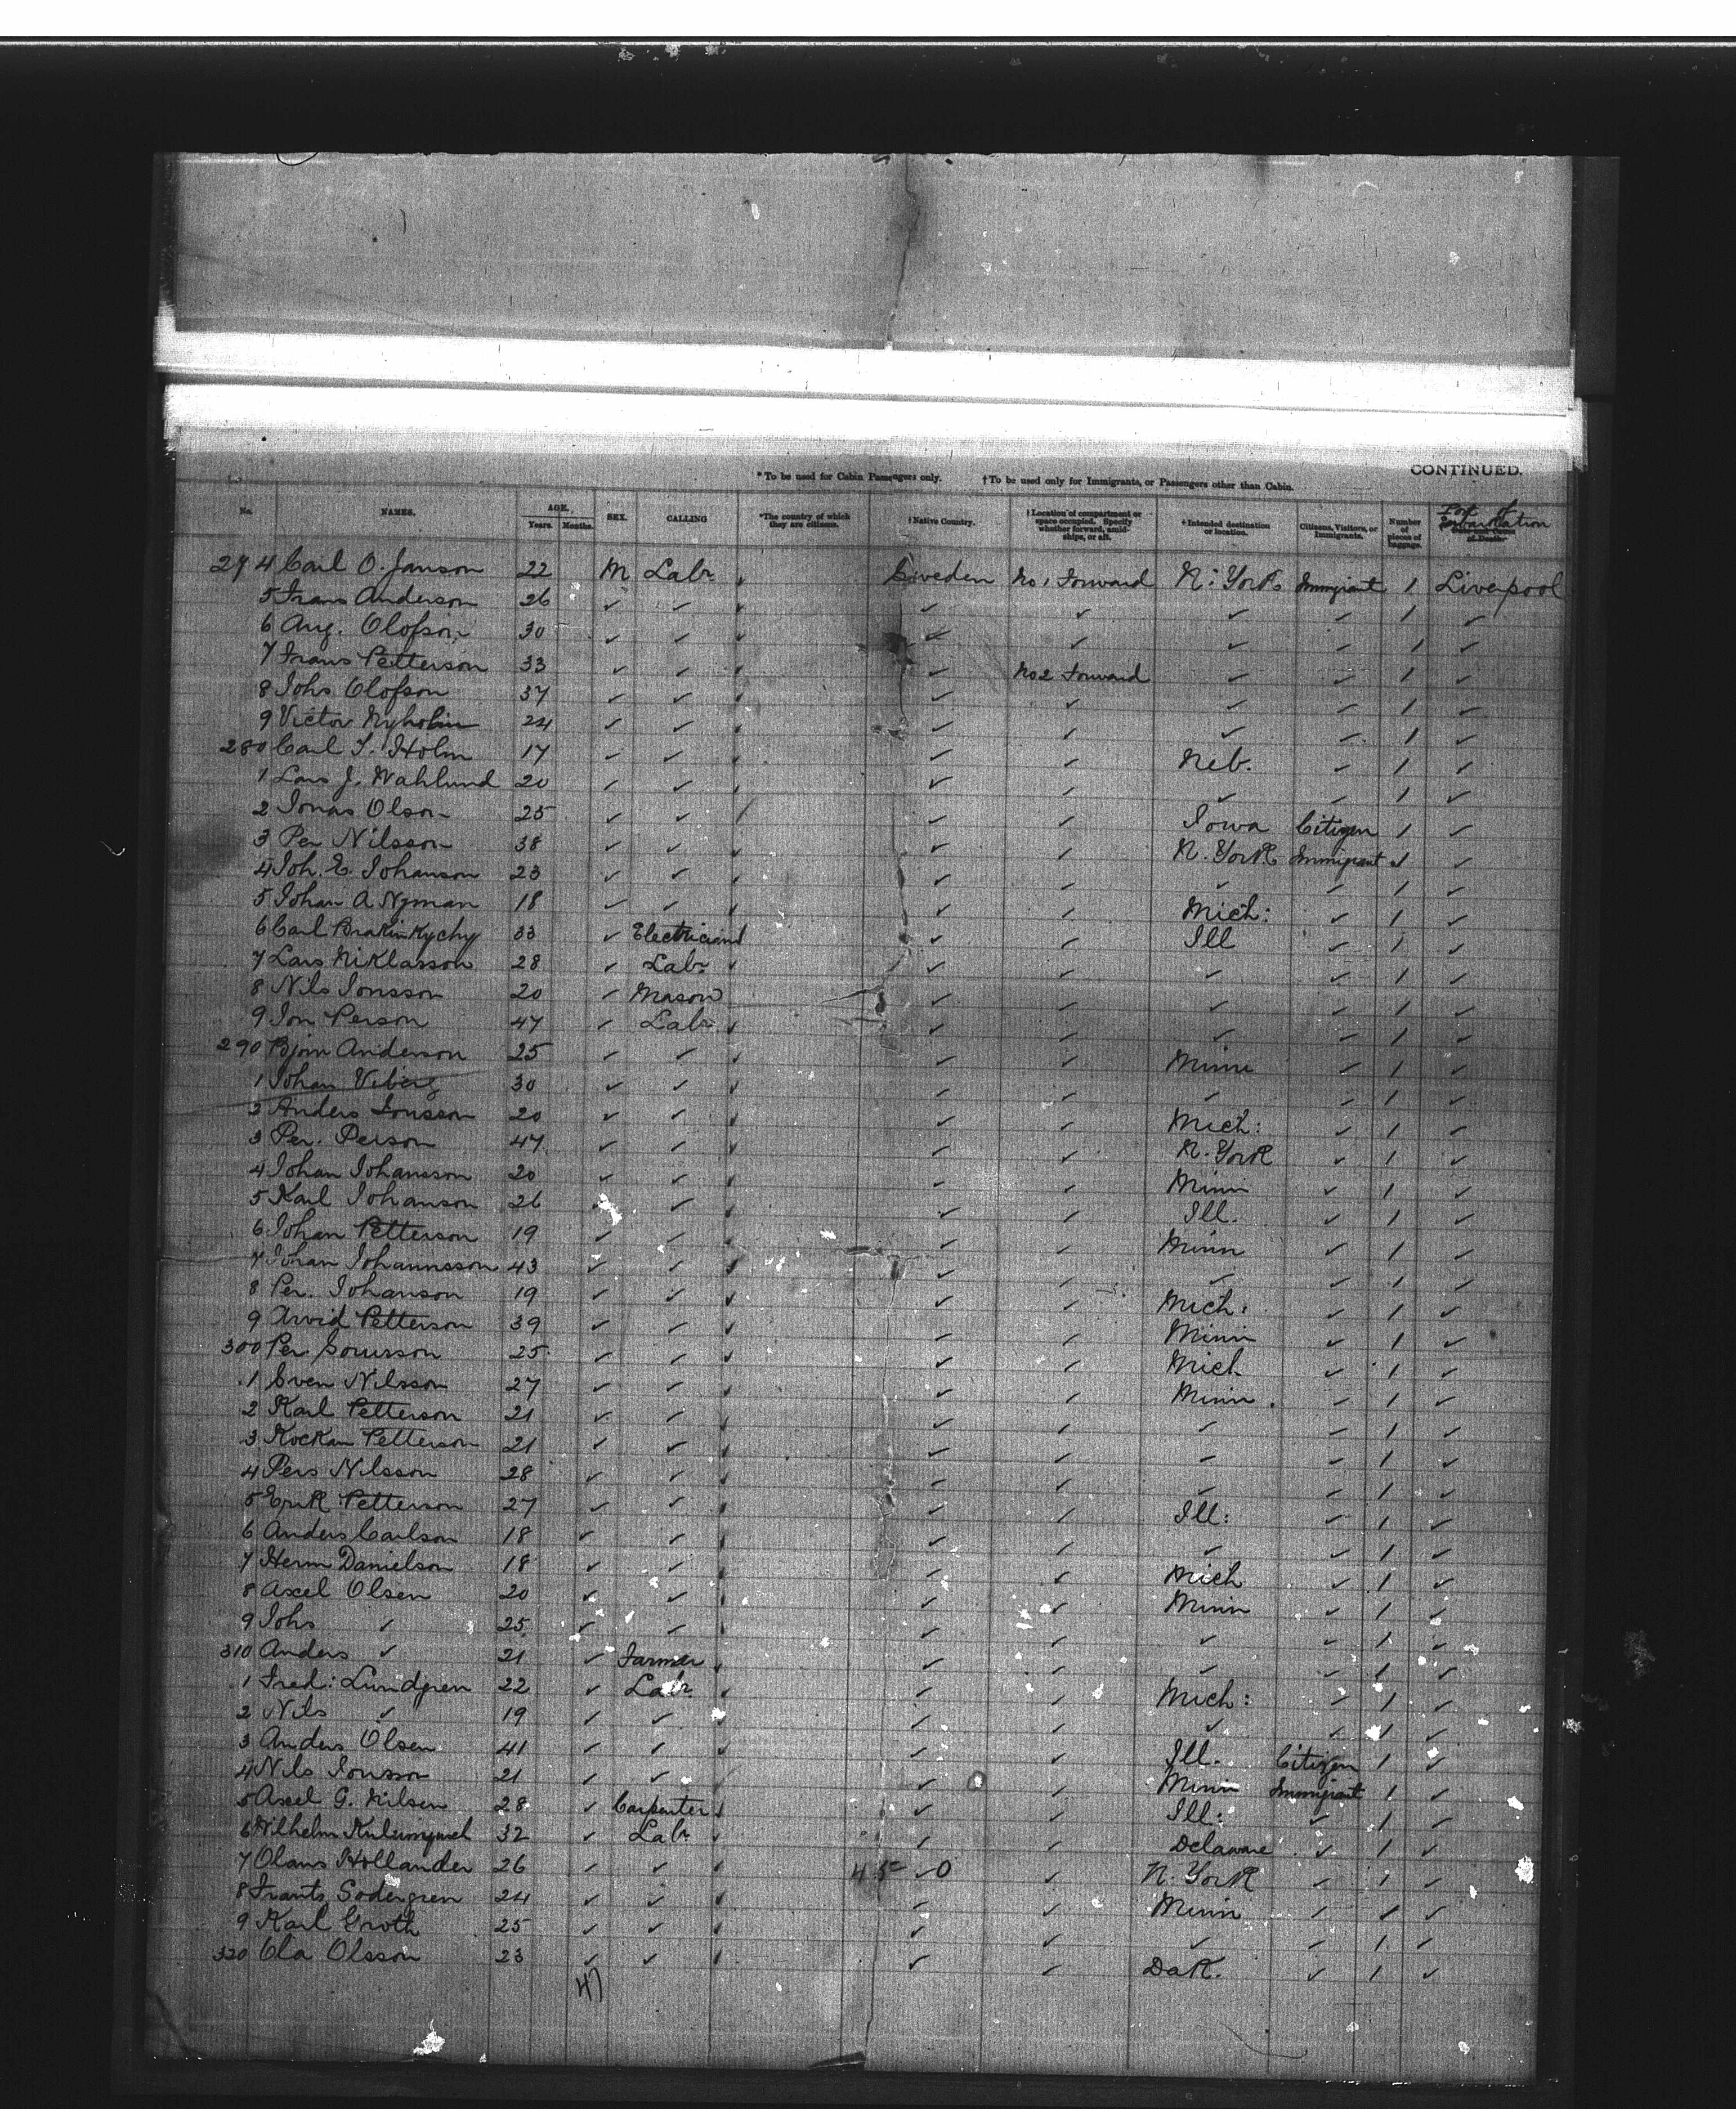 CONTINUED.
*To be used for Cabin Passengers only. †To be used only for Immigrants, or Passengers other than Cabin.
No. NAMES. AGE. Years. Months. SEX. CALLING *The country of which they are citizens. †Native Country. †Location of compartment or space occupied. Specify whether forward, amidships, or aft. †Intended destination or location. Citizens, Visitors, or Immigrants. Number of pieces of baggage. Port of Embarkation
274 Carl O. Janson 22 M Labr Sweden No 1 Forward N. York Immigrant 1 Liverpool
5 Frans Anderson 26 ✓ ✓ ✓ ✓ ✓ ✓ ✓ 1 ✓
6 Aug. Olofson 30 ✓ ✓ ✓ ✓ ✓ ✓ ✓ 1 ✓
7 Frans Petterson 33 ✓ ✓ ✓ ✓ No 2 Forward ✓ ✓ 1 ✓
8 Johs Olofson 37 ✓ ✓ ✓ ✓ ✓ ✓ ✓ 1 ✓
9 Victor Nyholm 24 ✓ ✓ ✓ ✓ ✓ ✓ ✓ 1 ✓
280 Carl F. Holm 17 ✓ ✓ ✓ ✓ ✓ Neb. ✓ 1 ✓
1 Lars J. Wahlund 20 ✓ ✓ ✓ ✓ ✓ ✓ ✓ 1 ✓
2 Jonas Olson 25 ✓ ✓ ✓ ✓ ✓ Iowa Citizen 1 ✓
3 Per Nilsson 38 ✓ ✓ ✓ ✓ ✓ N. York Immigrant 1 ✓
4 Joh. E. Johanson 23 ✓ ✓ ✓ ✓ ✓ ✓ ✓ 1 ✓
5 Johan A Nyman 18 ✓ ✓ ✓ ✓ ✓ Mich: ✓ 1 ✓
6 Carl 33 ✓ Electrician ✓ ✓ Ill ✓ 1 ✓
7 Lars Niklasson 28 ✓ Labr ✓ ✓ ✓ ✓ ✓ 1 ✓
8 Nils Jonsson 20 ✓ Mason ✓ ✓ ✓ ✓ 1 ✓
9 Jon Person 47 ✓ Labr ✓ ✓ ✓ ✓ ✓ 1 ✓
290 Bjorn Anderson 25 ✓ ✓ ✓ ✓ ✓ Minn ✓ 1 ✓
1 Johan Viberg 30 ✓ ✓ ✓ ✓ ✓ ✓ ✓ 1 ✓
2 Anders Jonsson 20 ✓ ✓ ✓ ✓ ✓ Mich: ✓ 1 ✓
3 Per. Person 47 ✓ ✓ ✓ ✓ ✓ N. York ✓ 1 ✓
4 Johan Johansson 20 ✓ ✓ ✓ ✓ ✓ Minn ✓ 1 ✓
5 Karl Johanson 26 ✓ ✓ ✓ ✓ Ill. ✓ 1 ✓
6 Johan Petterson 19 ✓ ✓ ✓ ✓ ✓ Minn ✓ 1 ✓
7 Johan Johannsson 43 ✓ ✓ ✓ ✓ ✓ ✓ ✓ 1 ✓
8 Per. Johanson 19 ✓ ✓ ✓ ✓ ✓ Mich: ✓ 1 ✓
9 Arvid Petterson 39 ✓ ✓ ✓ ✓ ✓ Minn ✓ 1 ✓
300 Per. 25 ✓ ✓ ✓ ✓ ✓ Mich ✓ 1 ✓
1 Sven Nilsson 27 ✓ ✓ ✓ ✓ ✓ Minn. ✓ 1 ✓
2 Karl Petterson 21 ✓ ✓ ✓ ✓ ✓ ✓ ✓ 1 ✓
3 Petterson 21 ✓ ✓ ✓ ✓ ✓ ✓ ✓ 1 ✓
4 Pers Nilsson 28 ✓ ✓ ✓ ✓ ✓ ✓ ✓ 1 ✓
5 Erik Petterson 27 ✓ ✓ ✓ ✓ ✓ Ill: ✓ 1 ✓
6 Anders Carlson 18 ✓ ✓ ✓ ✓ ✓ ✓ ✓ 1 ✓
7 Herm Danielson 18 ✓ ✓ ✓ ✓ ✓ Mich ✓ 1 ✓
8 Axel Olsen 20 ✓ ✓ ✓ ✓ ✓ Minn ✓ 1 ✓
9 Johs ✓ 25 ✓ ✓ ✓ ✓ ✓ ✓ ✓ 1 ✓
310 Anders ✓ 21 ✓ Farmer ✓ ✓ ✓ ✓ ✓ 1 ✓
1 Fred: Lundgren 22 ✓ Labr. ✓ ✓ ✓ Mich: ✓ 1 ✓
2 Nils ✓ 19 ✓ ✓ ✓ ✓ ✓ ✓ 1 ✓
3 Anders Olsen 41 ✓ ✓ ✓ ✓ ✓ Ill. Citizen 1 ✓
4 Nils Jonsson 21 ✓ ✓ ✓ ✓ Minn Immigrant 1 ✓
5 Axel G. Nilsen 28 ✓ Carpenter ✓ ✓ ✓ Ill: ✓ 1 ✓
6 Wilhelm 32 ✓ Labr ✓ ✓ ✓ Delaware ✓ 1 ✓
7 Olaus Hollander 26 ✓ ✓ ✓ ✓ ✓ N. York ✓ 1 ✓
8 Frants Sodergren 24 ✓ ✓ ✓ ✓ ✓ Minn ✓ 1 ✓
9 Karl Groth 25 ✓ ✓ ✓ ✓ ✓ ✓ ✓ 1 ✓
320 Ola Olsson 23 ✓ ✓ ✓ ✓ ✓ Dak. ✓ 1 ✓
47